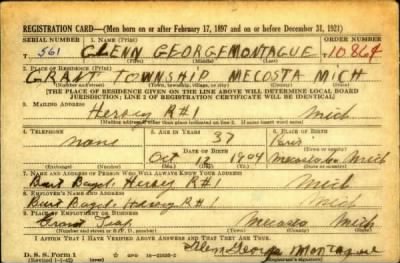 REGISTRATION CARD—(Men born on or after February 17, 1897 and on or before December 31, 1921)
SERIAL NUMBER 1. NAME (Print) ORDER NUMBER
T 561 GLENN GEORGE MONTAGUE 10864
(First) (Middle) (Last)
2. PLACE OF RESIDENCE (Print)
GRANT TOWNSHIP MECOSTA MICH
(Number and street) (Town, township, village, or city) (County) (State)
[THE PLACE OF RESIDENCE GIVEN ON THE LINE ABOVE WILL DETERMINE LOCAL BOARD
JURISDICTION; LINE 2 OF REGISTRATION CERTIFICATE WILL BE IDENTICAL]
3. MAILING ADDRESS
Hersey R#1 Mich
[Mailing address if other than place indicated on line 2. If same insert word same]
4. TELEPHONE 5. AGE IN YEARS 6. PLACE OF BIRTH
none 37 Paris
DATE OF BIRTH (Town or county)
Oct 12 1904 Mecosta Co Mich
(Exchange) (Number) (Mo.) (Day) (Yr.) (State or country)
7. NAME AND ADDRESS OF PERSON WHO WILL ALWAYS KNOW YOUR ADDRESS
Burt Boyd Hersey R#1 Mich
8. EMPLOYER'S NAME AND ADDRESS
Burt Boyd Hersey R#1 Mich
9. PLACE OF EMPLOYMENT OR BUSINESS
Grant Mecosta Mich
(Number and street or R. F. D. number) (Town) (County) (State)
I AFFIRM THAT I HAVE VERIFIED ABOVE ANSWERS AND THAT THEY ARE TRUE.
D. S. S. Form 1 Glenn George Montague
(Revised 1-1-42)